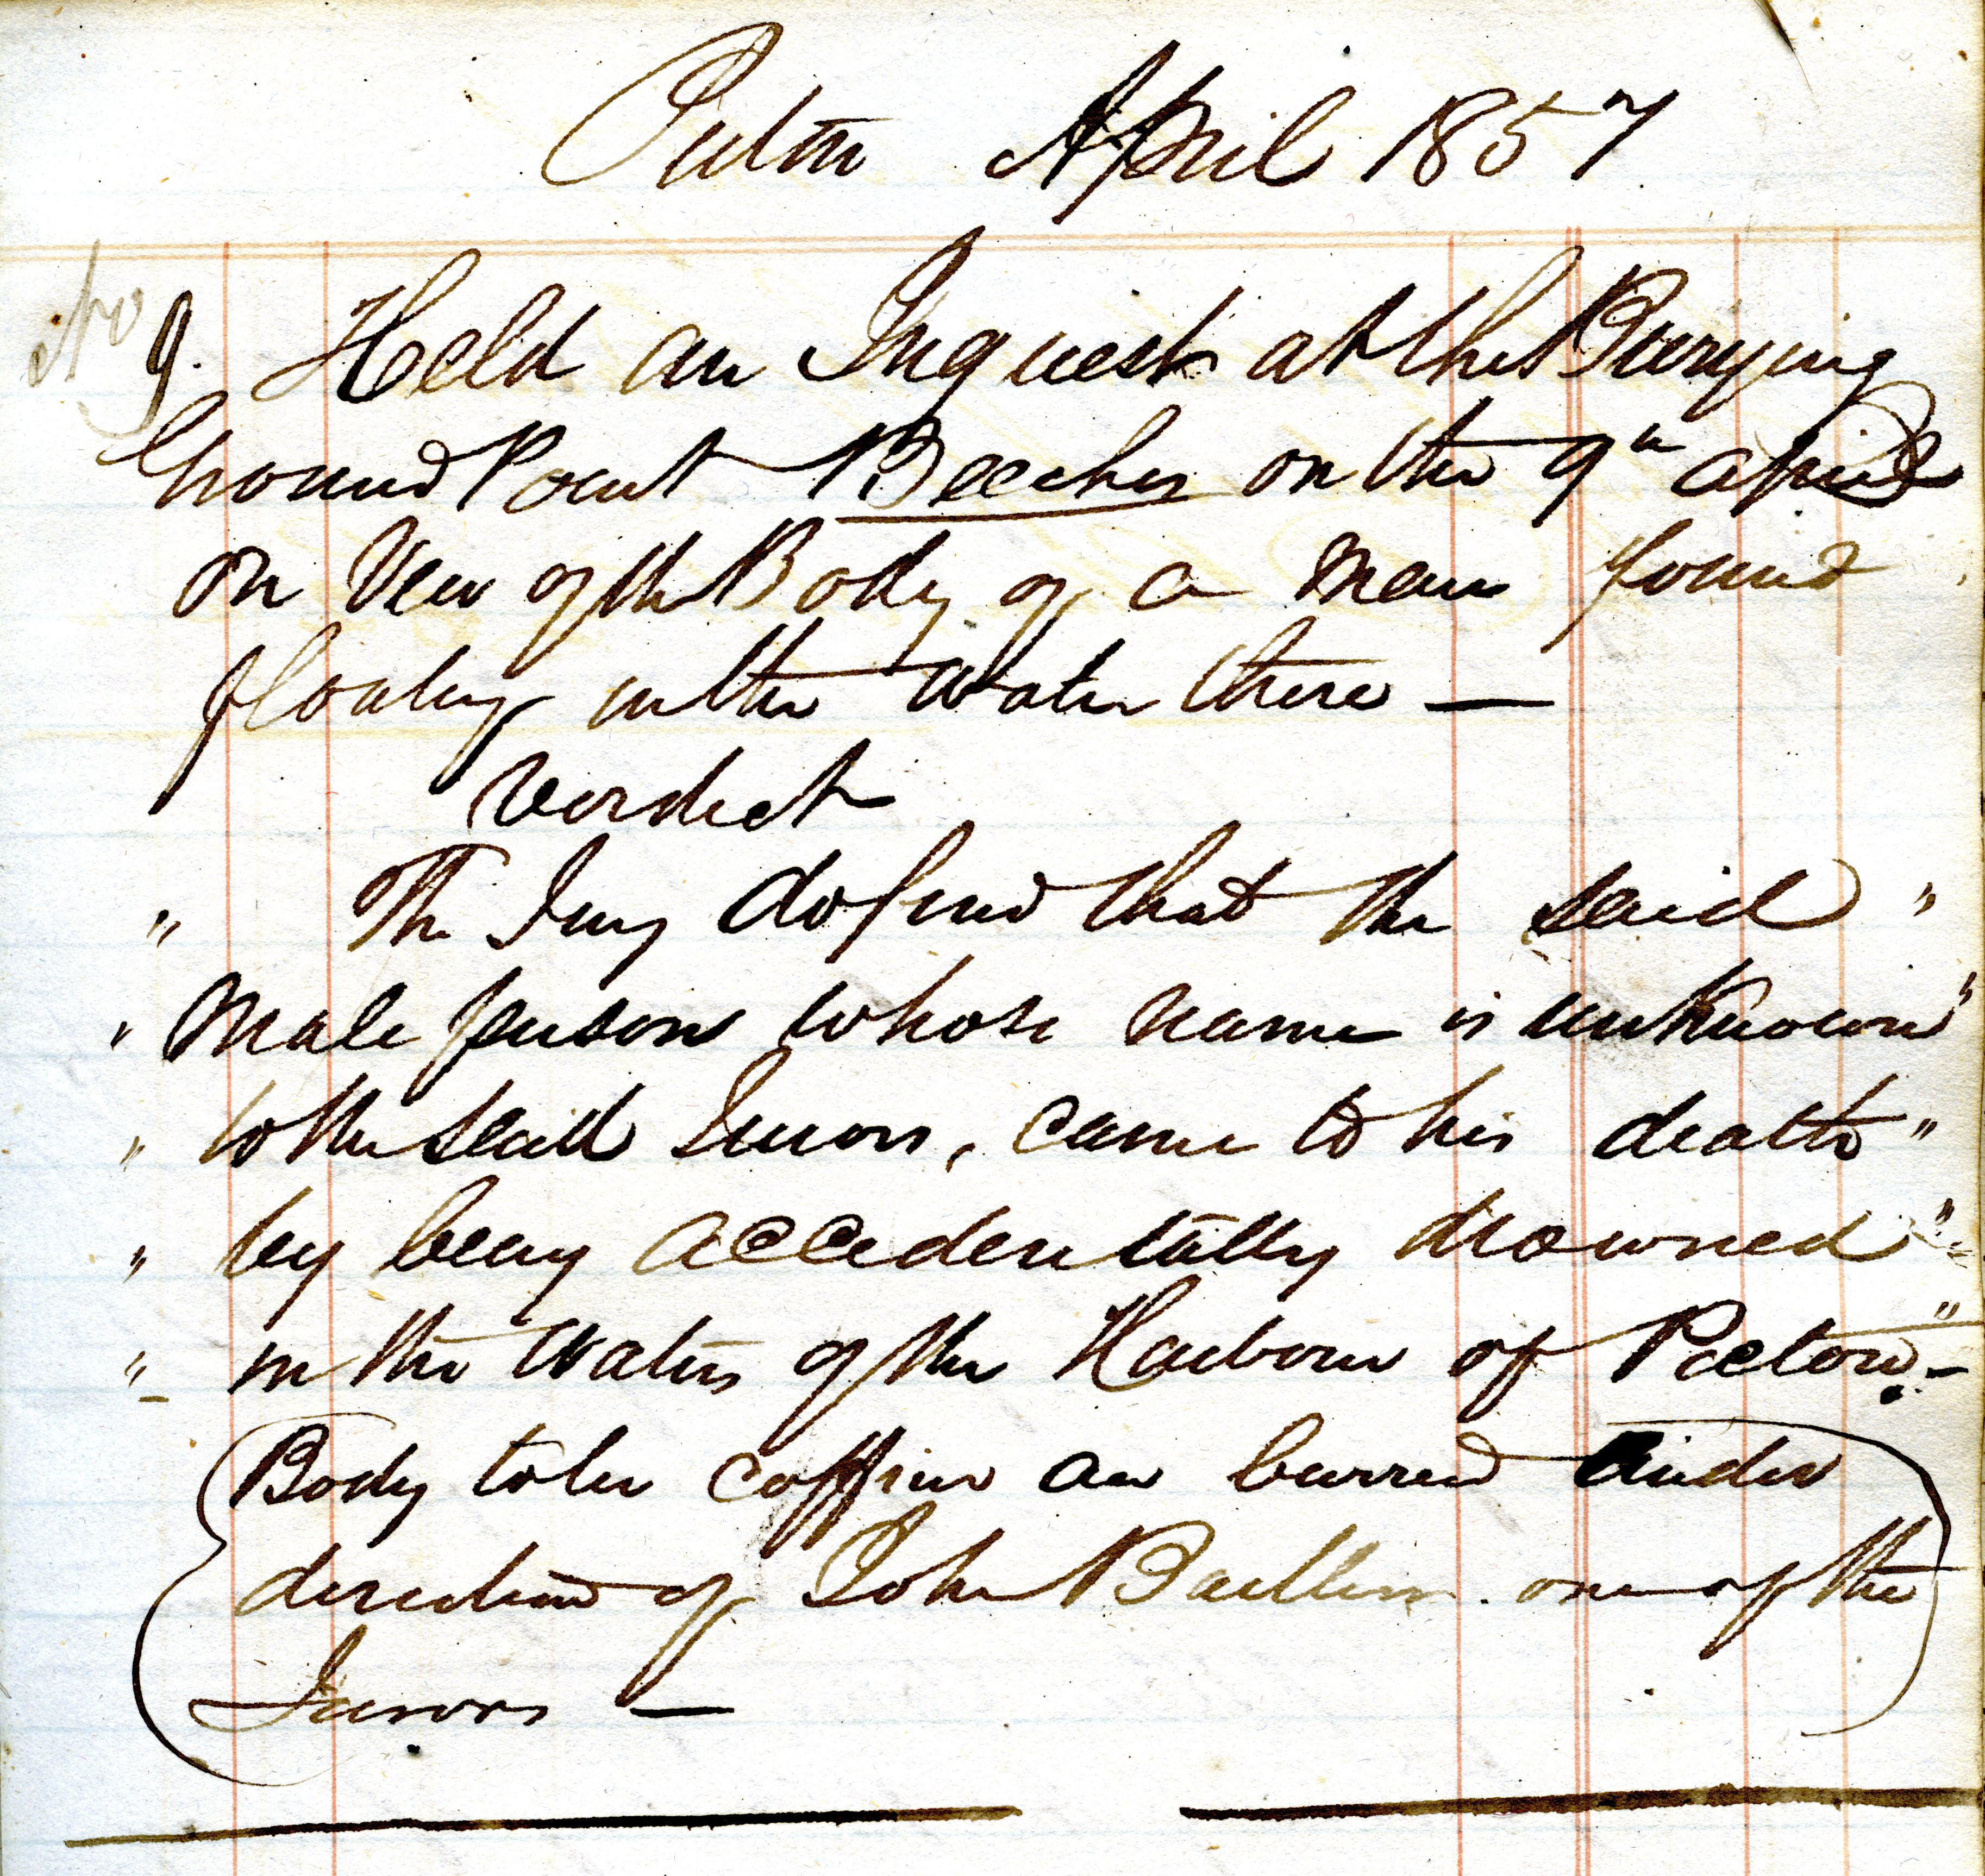 Picton April 1857
No 9. Held an Inquest at the Burying
Ground Point Beeches on the 9th April
on View of the Body of a Man found
floating in the Water there —
Verdict
" The Jury do find that the said "
" Male person whose name is unknown "
" to the said Jurors, came to his death "
" by being accedentally drowned "
" in the Waters of the Harbour of Pictou. " -
Body to be coffin an burred under
direction of John one of the
Jurors —